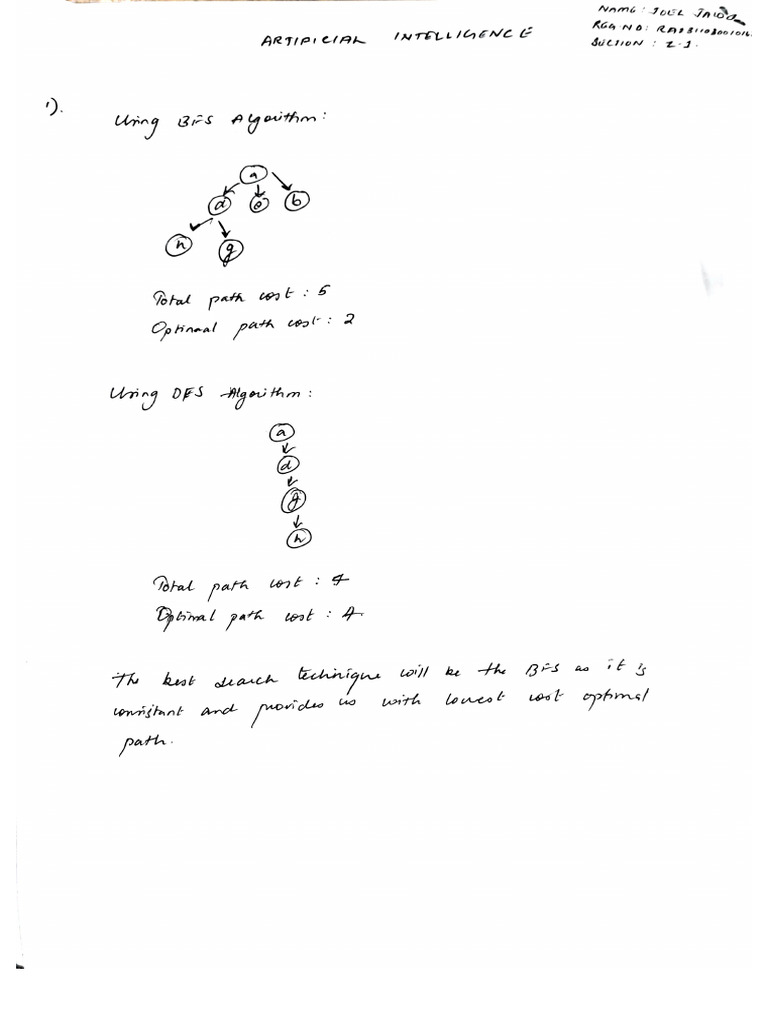 NAME : JOEL
REG NO :
SECTION : Z-1.
ARTIFICIAL INTELLIGENCE
1).
Using BFS Algorithm:
a
d e b
h g
Total path cost : 5
Optimal path cost : 2
Using DFS Algorithm :
a
d
g
h
Total path cost : 4
Optimal path cost : 4.
The best search technique will be the BFS as it is
consistant and provides us with lowest cost optimal
path.